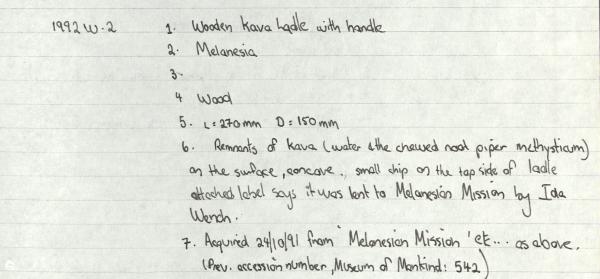 1992 W.2 1. Wooden Kava ladle with handle
2. Melanesia
3.
4 Wood
5. L=270mm D=150mm
6. Remnants of Kava (water & the chewed root piper methysticum)
on the surface, concave., small chip on the top side of ladle
attached label says it was lent to Melanesian Mission by Ida
Wench.
7. Acquired 24/10/91 from 'Melanesian Mission' etc... as above.
(Prev. accession number, Museum of Mankind: 542)